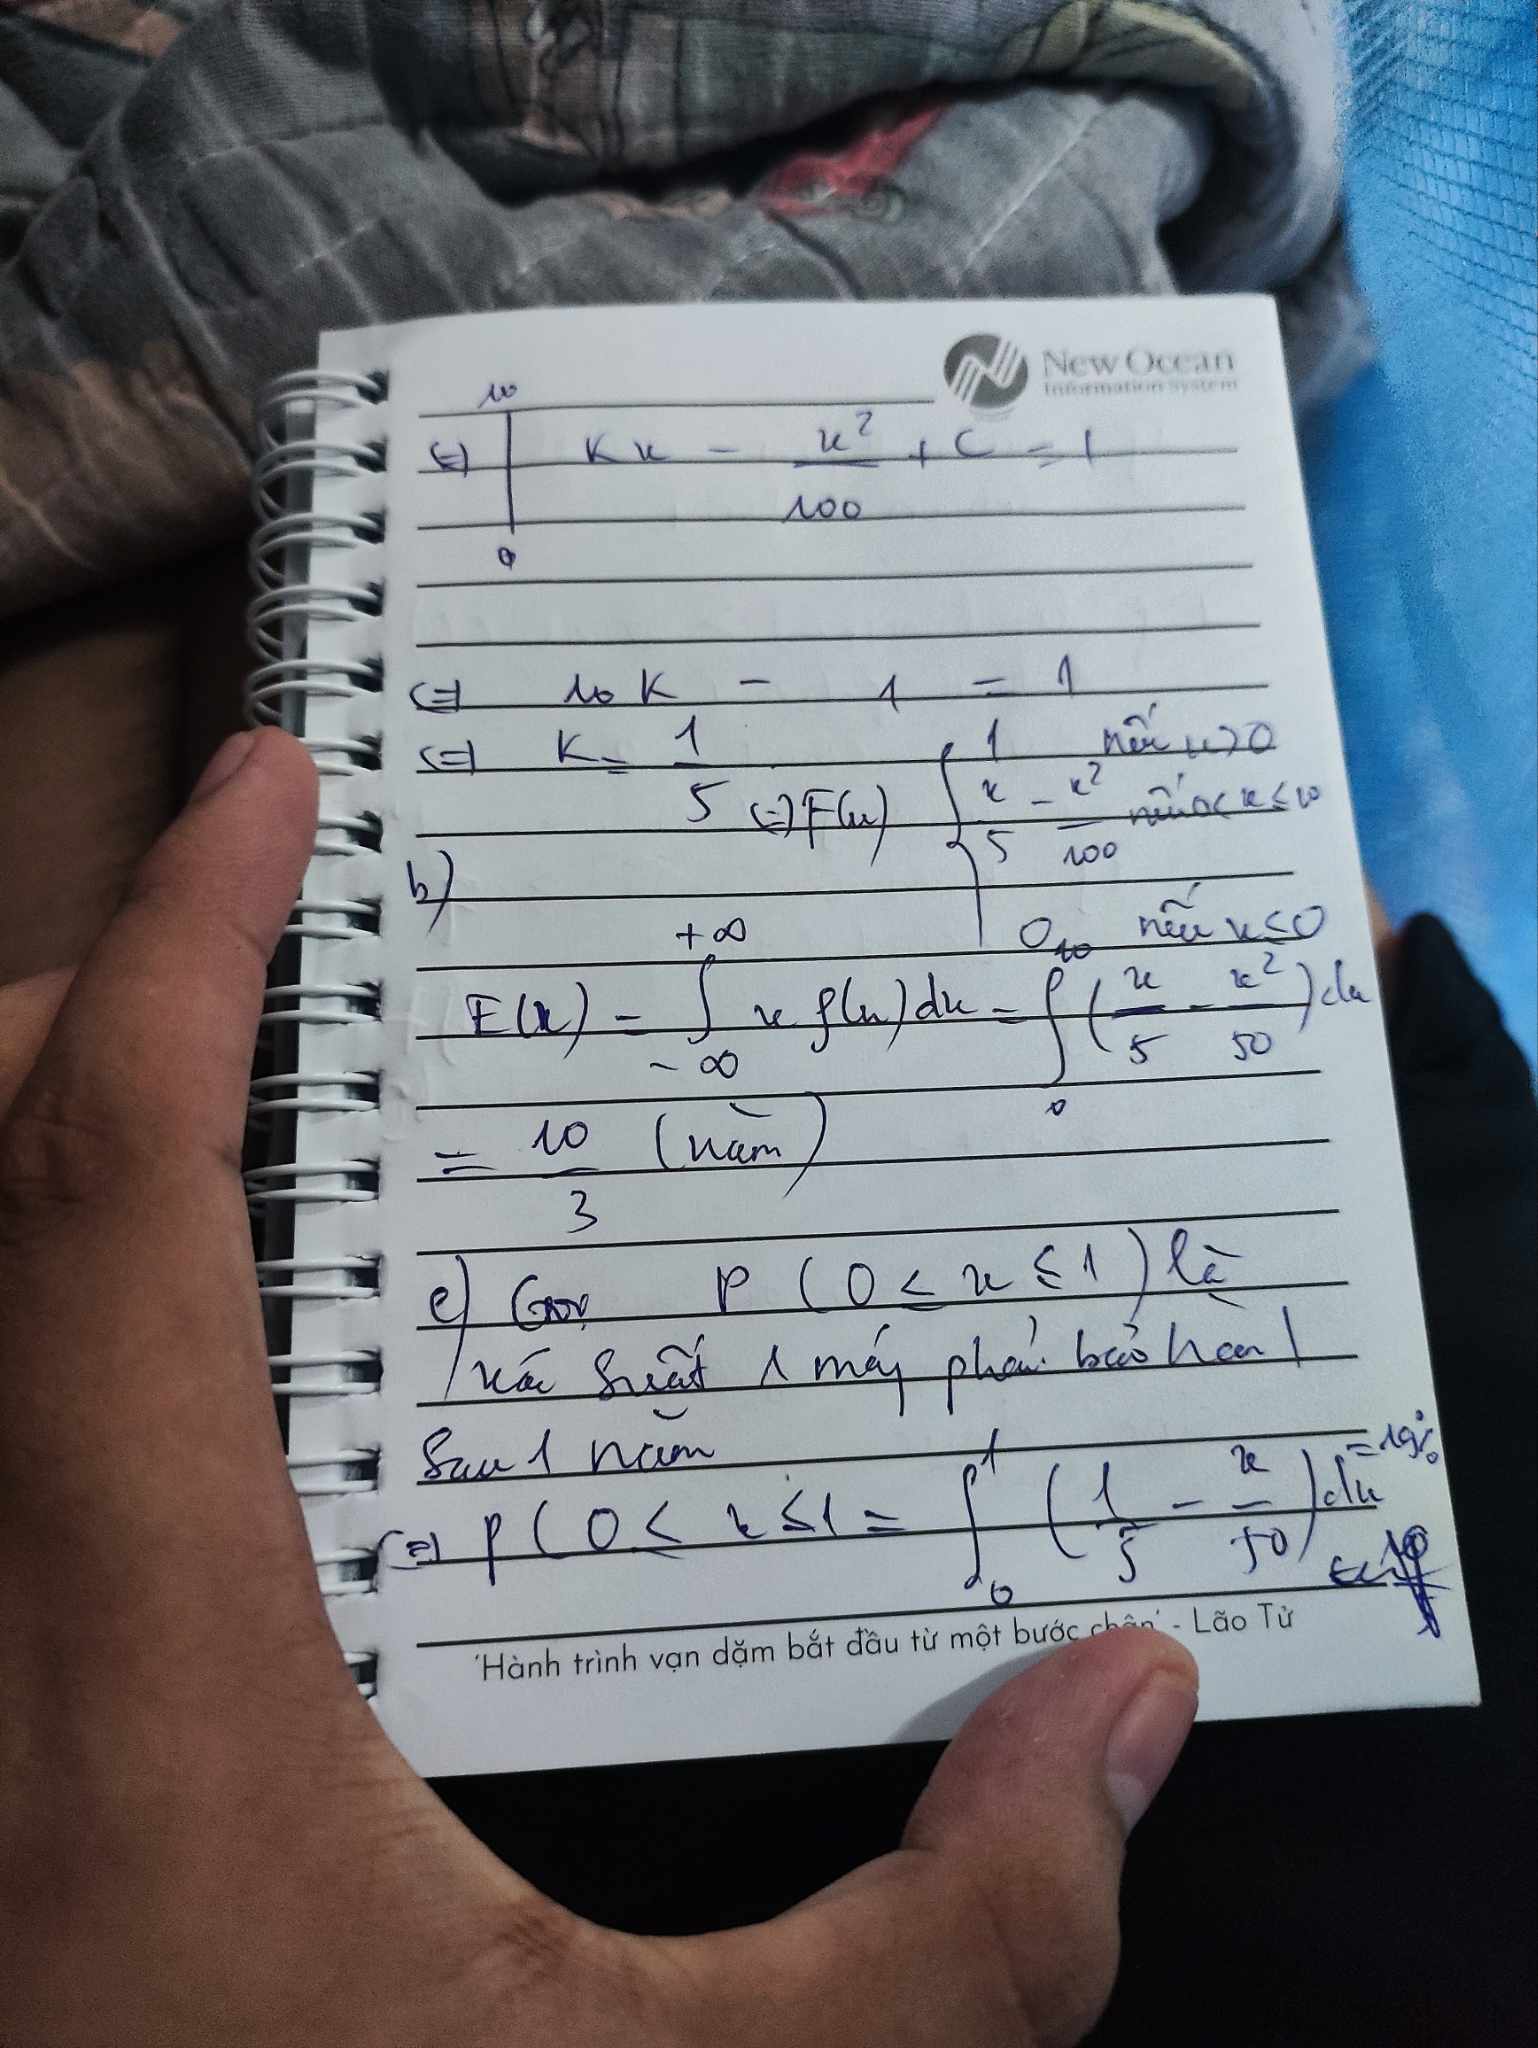 New Ocean
Information System
10
(=) | Kx - x²/100 + C = 1
0
(=) 10K - 1 = 1
(=) K = 1/5 (=) F(x) { 1 nếu x > 0
x/5 - x²/100 nếu 0 < x ≤ 10
0 nếu x ≤ 0
b)
E(x) = ∫_{-∞}^{+∞} x f(x) dx = ∫_0^{10} (x/5 - x²/50) dx
= 10/3 (năm)
c) Gọi P (0 < x ≤ 1) là
xác suất 1 máy phải bảo hàn
Sau 1 năm
(=) P (0 < x ≤ 1 = ∫_0^1 (1/5 - x/50) dx = 19%
'Hành trình vạn dặm bắt đầu từ một bước chân' - Lão Tử